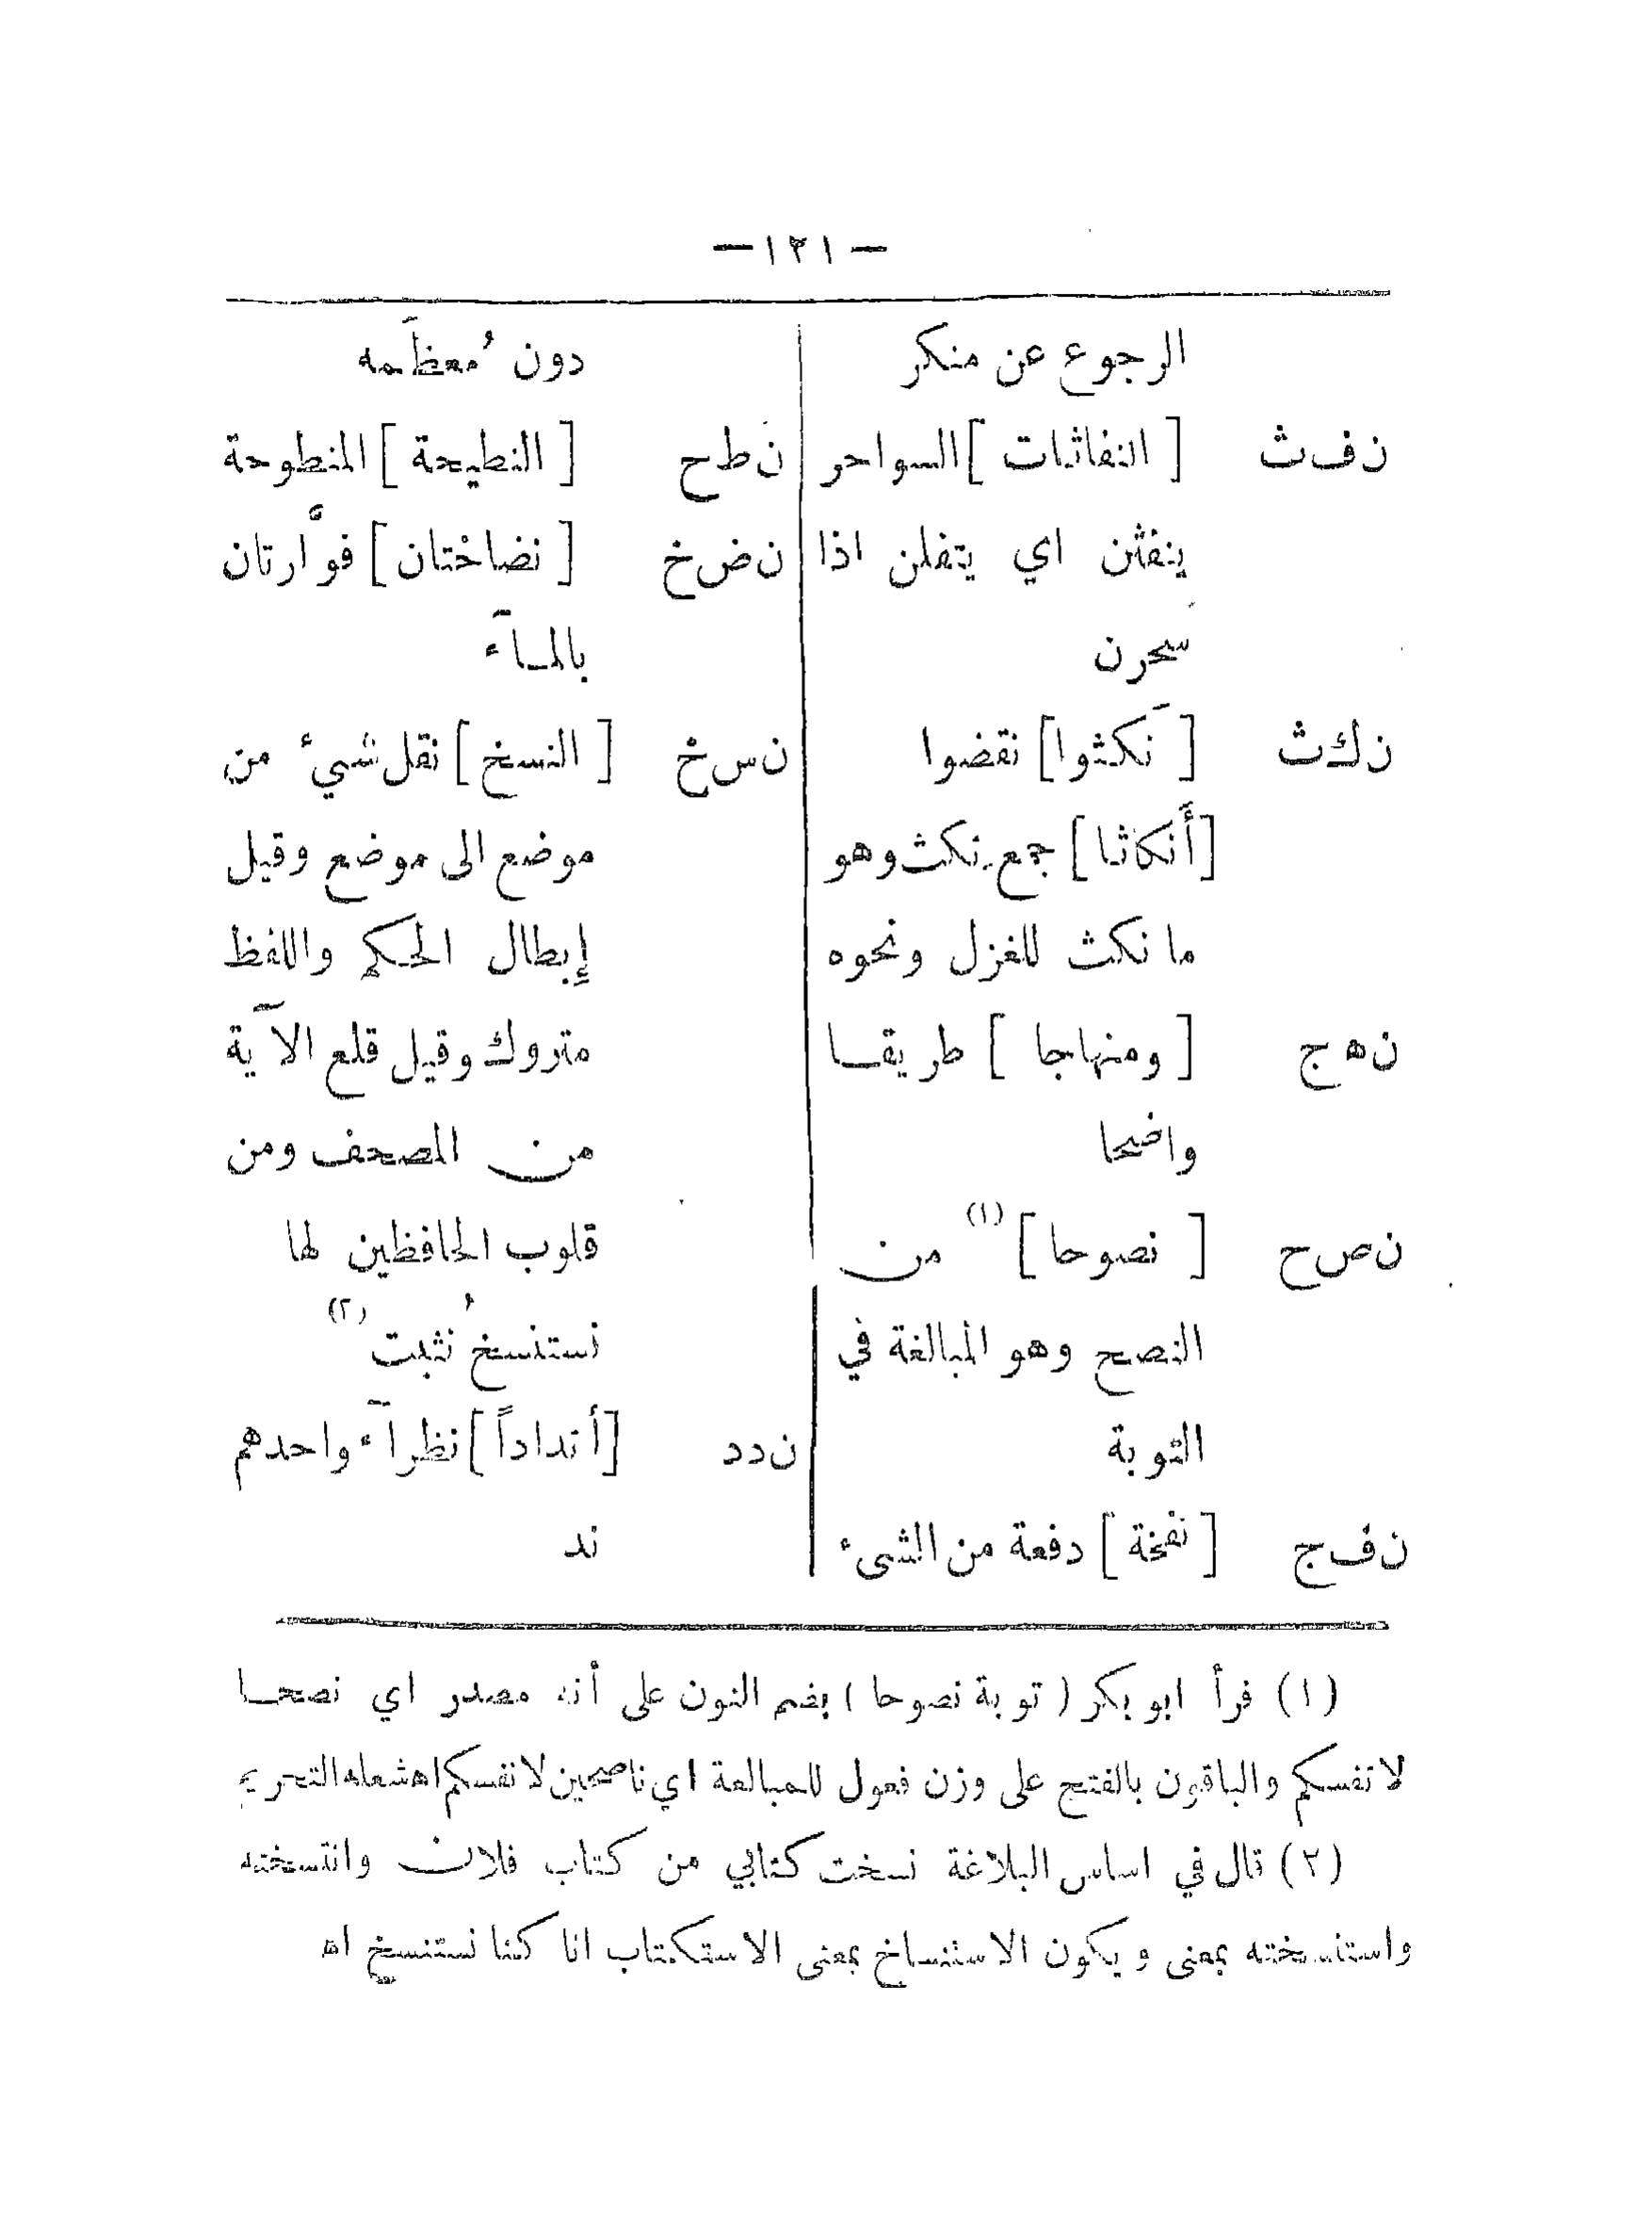 — ١٢١ —
الرجوع عن منكر
ن ف ث [ النفاثات ] السواحر
ينفثن اي يتفلن اذا
سَحرن
ن ك ث [ نَكثوا ] نقضوا
[ أَنكاثا ] جمع نكث وهو
ما نكث للغزل ونحوه
ن ه ج [ ومنهاجا ] طريقا
واضحا
ن ص ح [ نصوحا ] (١) من
النصح وهو المبالغة في
التوبة
ن ف ج [ نفخة ] دفعة من الشيء
دون مُعظَمه
ن ط ح [ النطيحة ] المنطوحة
ن ض خ [ نضاختان ] فوَّارتان
بالمآء
ن س خ [ النسخ ] نقل شيء من
موضع الى موضع وقيل
إبطال الحكم واللفظ
متروك وقيل قلع الآية
من المصحف ومن
قلوب الحافظين لها
نستنسخ نُثبت (٢)
ن د د [ أنداداً ] نظرآء واحدهم
ند
(١) قرأ ابو بكر ( توبة نصوحا ) بضم النون على أنه مصدر اي نصحا
لانفسكم والباقون بالفتح على وزن فعول للمبالغة اي ناصحين لانفسكم اه شعله التحريم
(٢) قال في اساس البلاغة نسخت كتابي من كتاب فلان وانتسخته
واستنسخته بمعنى ويكون الاستنساخ بمعنى الاستكتاب انا كنا نستنسخ اه